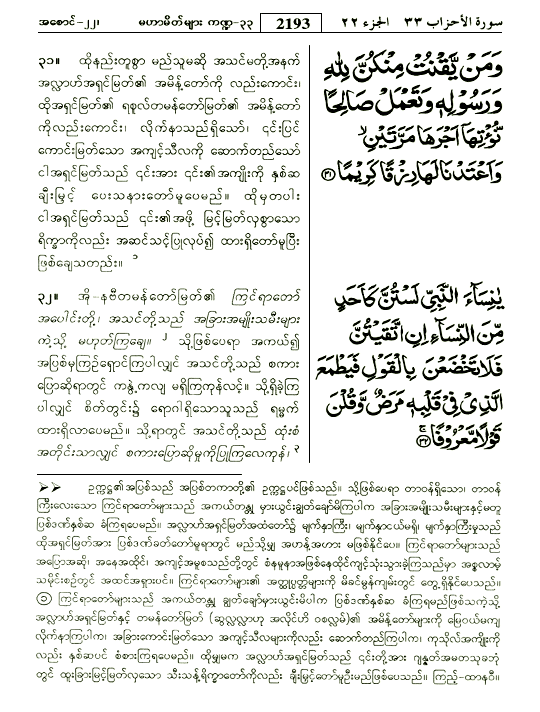 အစောင်-၂၂၊
မဟာမိတ်များ ကဏ္ဍ-၃၃
2193
سورة الأحزاب ٣٣ الجزء ٢٢
၃၁။ ထိုနည်းတူစွာ မည်သူမဆို အသင်မတို့အနက်
အလ္လာဟ်အရှင်မြတ်၏ အမိန့်တော်ကို လည်းကောင်း၊
ထိုအရှင်မြတ်၏ ရစူလ်တမန်တော်မြတ်၏ အမိန့်တော်
ကိုလည်းကောင်း၊ လိုက်နာသည်ရှိသော်၊ ၎င်းပြင်
ကောင်းမြတ်သော အကျင့်သီလကို ဆောက်တည်သော်
ငါအရှင်မြတ်သည် ၎င်းအား ၎င်း၏အကျိုးကို နှစ်ဆ
ချီးမြှင့် ပေးသနားတော်မူပေမည်။ ထိုမှတပါး
ငါအရှင်မြတ်သည် ၎င်း၏အဖို့ မြင့်မြတ်လှစွာသော
ရိက္ခာကိုလည်း အဆင်သင့်ပြုလုပ်၍ ထားရှိတော်မူပြီး
ဖြစ်ချေသတည်း။ ၁
وَمَنْ يَّقْنُتْ مِنْكُنَّ لِلّٰهِ
وَرَسُوْلِهٖ وَتَعْمَلْ صَالِحًا
نُّؤْتِهَآ اَجْرَهَا مَرَّتَيْنِ ۙ
وَاَعْتَدْنَا لَهَا رِزْقًا كَرِيْمًا ۝٣١
၃၂။ အို-နဗီတမန်တော်မြတ်၏ ကြင်ရာတော်
အပေါင်းတို့၊ အသင်တို့သည် အခြားအမျိုးသမီးများ
ကဲ့သို့ မဟုတ်ကြချေ။ ၂ သို့ဖြစ်ပေရာ အကယ်၍
အပြစ်မှကြဉ်ရှောင်ကြပါလျှင် အသင်တို့သည် စကား
ပြောဆိုရာတွင် ကနွဲ့ကလျ မရှိကြကုန်လင့်။ သို့ရှိခဲ့ကြ
ပါလျှင် စိတ်တွင်း၌ ရောဂါရှိသောသူသည် ရမ္မက်
ထားရှိလာပေမည်။ သို့ရာတွင် အသင်တို့သည် ထုံးစံ
အတိုင်းသာလျှင် စကားပြောဆိုမှုကိုပြုကြလေကုန်၊ ၃
يٰنِسَآءَ النَّبِيِّ لَسْتُنَّ كَاَحَدٍ
مِّنَ النِّسَآءِ اِنِ اتَّقَيْتُنَّ
فَلَا تَخْضَعْنَ بِالْقَوْلِ فَيَطْمَعَ
الَّذِيْ فِيْ قَلْبِهٖ مَرَضٌ وَّقُلْنَ
قَوْلًا مَّعْرُوْفًا ۝٣٢
➢➢ ဥက္ကဋ္ဌ၏အပြစ်သည် အပြစ်တကာတို့၏ ဥက္ကဋ္ဌပင်ဖြစ်သည်။ သို့ဖြစ်ပေရာ တာဝန်ရှိသော၊ တာဝန်
ကြီးလေးသော ကြင်ရာတော်များသည် အကယ်တန္တု မှားယွင်းချွတ်ချော်မိကြပါက အခြားအမျိုးသမီးများနှင့်မတူ
ပြစ်ဒဏ်နှစ်ဆ ခံကြရပေမည်။ အလ္လာဟ်အရှင်မြတ်အထံတော်၌ မျက်နှာကြီး၊ မျက်နှာငယ်မရှိ၊ မျက်နှာကြီးမှုသည်
ထိုအရှင်မြတ်အား ပြစ်ဒဏ်ခတ်တော်မူရာတွင် မည်သို့မျှ အဟန့်အတား မဖြစ်နိုင်ပေ။ ကြင်ရာတော်များသည်
အပြောအဆို၊ အနေအထိုင်၊ အကျင့်အမူစသည်တို့တွင် စံနမူနာအဖြစ်နေထိုင်ကျင့်သုံးသွားခဲ့ကြသည်မှာ အစ္စလာမ့်
သမိုင်းစဉ်တွင် အထင်အရှားပင်။ ကြင်ရာတော်များ၏ အတ္ထုပ္ပတ္တိများကို မိခင်မွန်ကျမ်းတွင် တွေ့ရှိနိုင်ပေသည်။
၁ ကြင်ရာတော်များသည် အကယ်တန္တု ချွတ်ချော်မှားယွင်းမိပါက ပြစ်ဒဏ်နှစ်ဆ ခံကြရမည်ဖြစ်သကဲ့သို့
အလ္လာဟ်အရှင်မြတ်နှင့် တမန်တော်မြတ် (ဆွလ္လလ္လာဟု အလိုင်ဟိ ဝစလ္လမ်)၏ အမိန့်တော်များကို မြေဝယ်မကျ
လိုက်နာကြပါက၊ အခြားကောင်းမြတ်သော အကျင့်သီလများကိုလည်း ဆောက်တည်ကြပါက၊ ကုသိုလ်အကျိုးကို
လည်း နှစ်ဆပင် စံစားကြရပေမည်။ ထိုမျှမက အလ္လာဟ်အရှင်မြတ်သည် ၎င်းတို့အား ဂျန္နတ်အမတသုခဘုံ
တွင် ထူးခြားမြင့်မြတ်လှသော သီးသန့်ရိက္ခာတော်ကိုလည်း ချီးမြှင့်တော်မူဦးမည်ဖြစ်ပေသည်။ ကြည့်-ထာနဝီ။